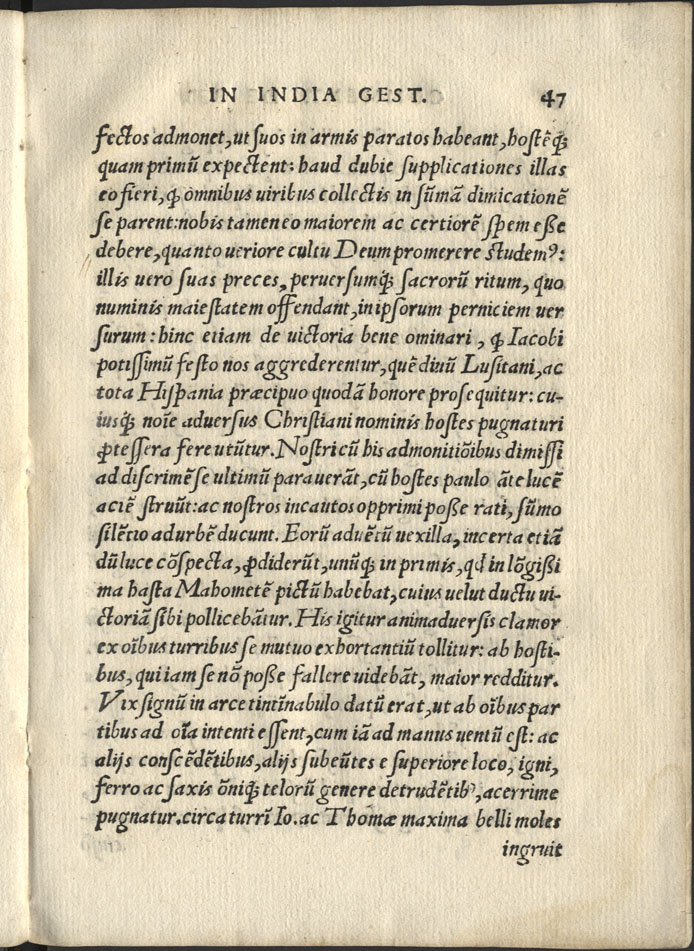 IN INDIA GEST. 47
fectos admonet, ut suos in armis paratos habeant, hostẽq́;
quam primũ expectent: haud dubie supplicationes illas
eo fieri, ꝙ omnibus uiribus collectis in sũmã dimicationẽ
se parent: nobis tamen eo maiorem ac certiorẽ spem eße
debere, quanto ueriore cultu Deum promerere studemꝰ:
illis uero suas preces, peruersumq́; sacrorũ ritum, quo
numinis maiestatem offendant, in ipsorum perniciem uer
surum: hinc etiam de uictoria bene ominari, ꝙ Iacobi
potissimũ festo nos aggrederentur, quẽ diuũ Lusitani, ac
tota Hispania præcipuo quodã honore prosequitur: cu-
iusq́; noĩe aduersus Christiani nominis hostes pugnaturi
ꝓ tessera fere utũtur. Nostri cũ his admonitiõibus dimissi
ad discrimẽ se ultimũ parauerãt, cũ hostes paulo ãte lucẽ
aciẽ struũt: ac nostros incautos opprimi poße rati, sũmo
silẽtio ad urbẽ ducunt. Eorũ aduẽtũ uexilla, incerta etiã
dũ luce cõspecta, ꝓdiderũt, unũq́; in primis, qd in lõgißi
ma hasta Mahometẽ pictũ habebat, cuius uelut ductu ui-
ctoriã sibi pollicebãtur. His igitur animaduersis clamor
ex oĩbus turribus se mutuo exhortantiũ tollitur: ab hosti-
bus, qui iam se nõ poße fallere uidebãt, maior redditur.
Vix signũ in arce tintĩnabulo datũ erat, ut ab oĩbus par
tibus ad oĩa intenti essent, cum iã ad manus uentũ est: ac
alijs conscẽdẽtibus, alijs subeũtes e superiore loco, igni,
ferro ac saxis õniq́; telorũ genere detrudẽtibꝰ, acerrime
pugnatur. circa turrĩ Io. ac Thomæ maxima belli moles
ingruit